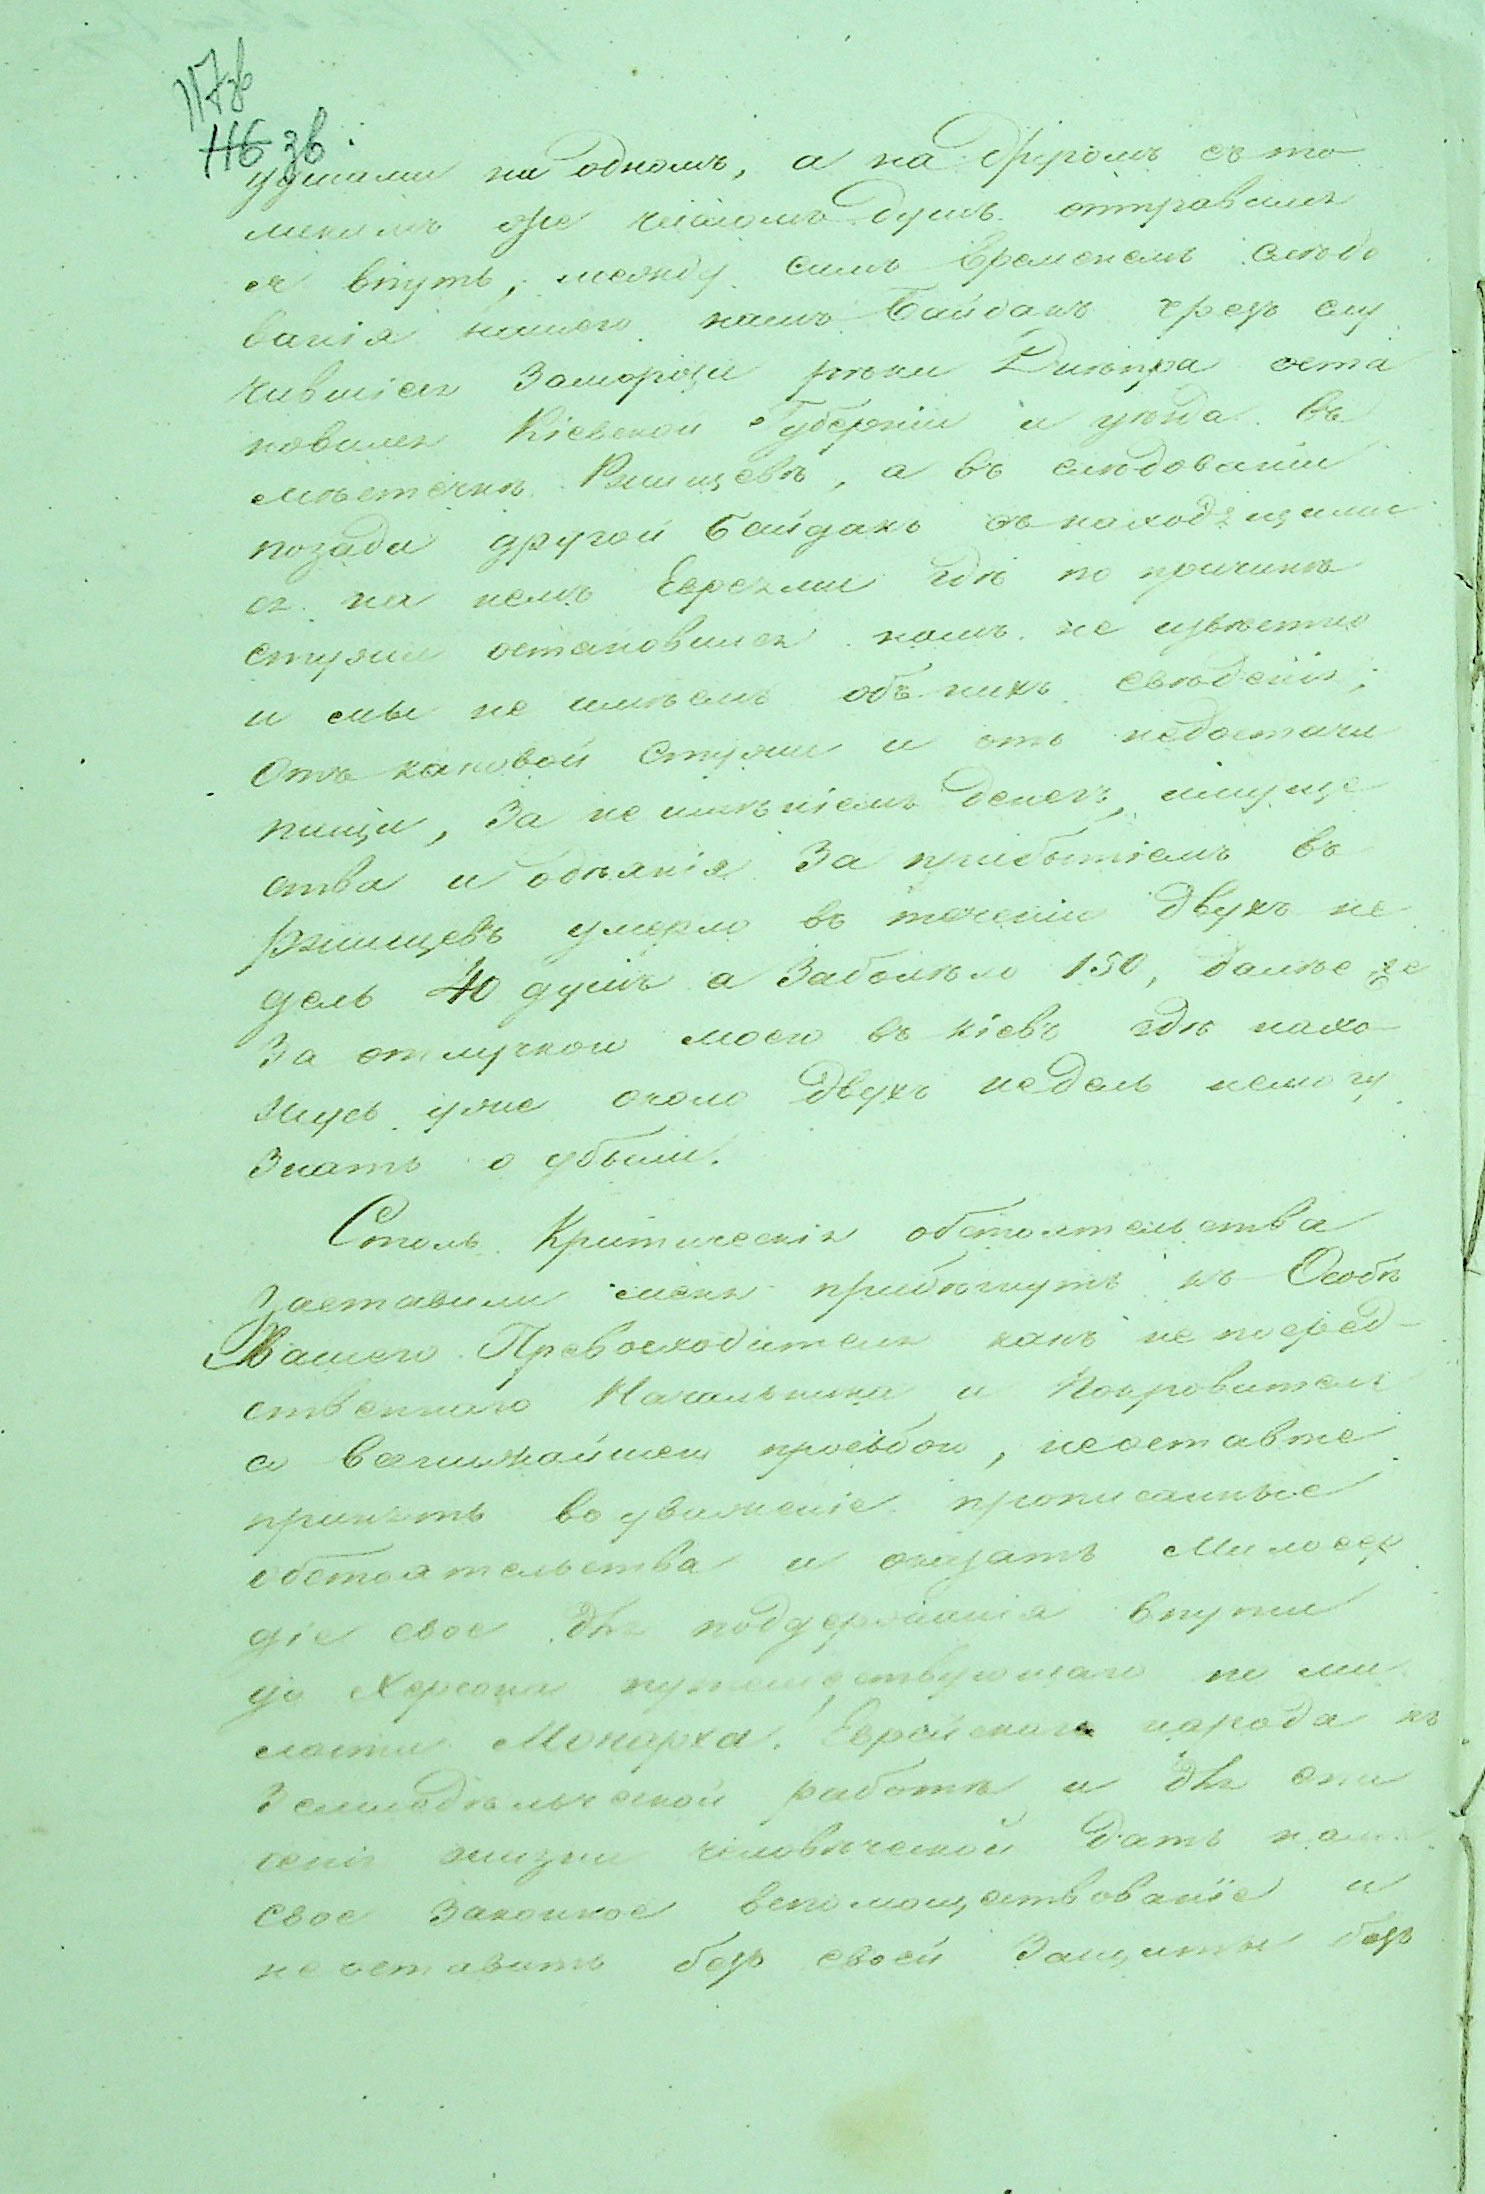 117зв
116 зв.
душами на одномъ, а на другомъ съ то
ликимъ же числомъ душъ отправилъ
ся впуть, между симъ временемъ следо
ванія нашего нашъ Байдакъ чрезъ слу
чившіеся Заморозы рѣки Днѣпра оста
новился Кіевской Губерніи и уѣзда въ
мѣстечкѣ Ржищевѣ, а въ слѣдованіи
позади другой байдакъ съ находящими
ся на немъ Евреями гдѣ по причинѣ
стужи остановился намъ не извѣстно
и мы не имѣемъ объ нихъ свѣденія;
Отъ каковой Стужи и отъ недостачи
пищи, За не имѣніемъ денегъ, имуще
ства и одѣянія За прибытіемъ въ
Ржищевъ умерло въ теченіи двухъ не
дель 40 душъ а Заболѣло 150, далѣе же
За отлучкою моею въ Кіевъ гдѣ нахо-
жусь уже около двухъ недель немогу
Знать о убыли.
Столь Критическія обстоятельства
Заставили меня прибѣгнуть къ Особѣ
Вашего Превосходителя какъ непосред-
ственнаго Начальника и Покровителя
а всенижайшею просьбою, неоставте
принять во уваженіе прописанные
обстоятельства и оказать Милосер
діе свое для поддержанія впути
до Херсона путешествующаго по ми
лости Монарха! Еврейскаго народа къ
Земледѣльческой работѣ и для спа
сенія жизни человѣческой дать нам
свое Законное вспомоществованіе и
не оставить безъ своей Защиты безъ